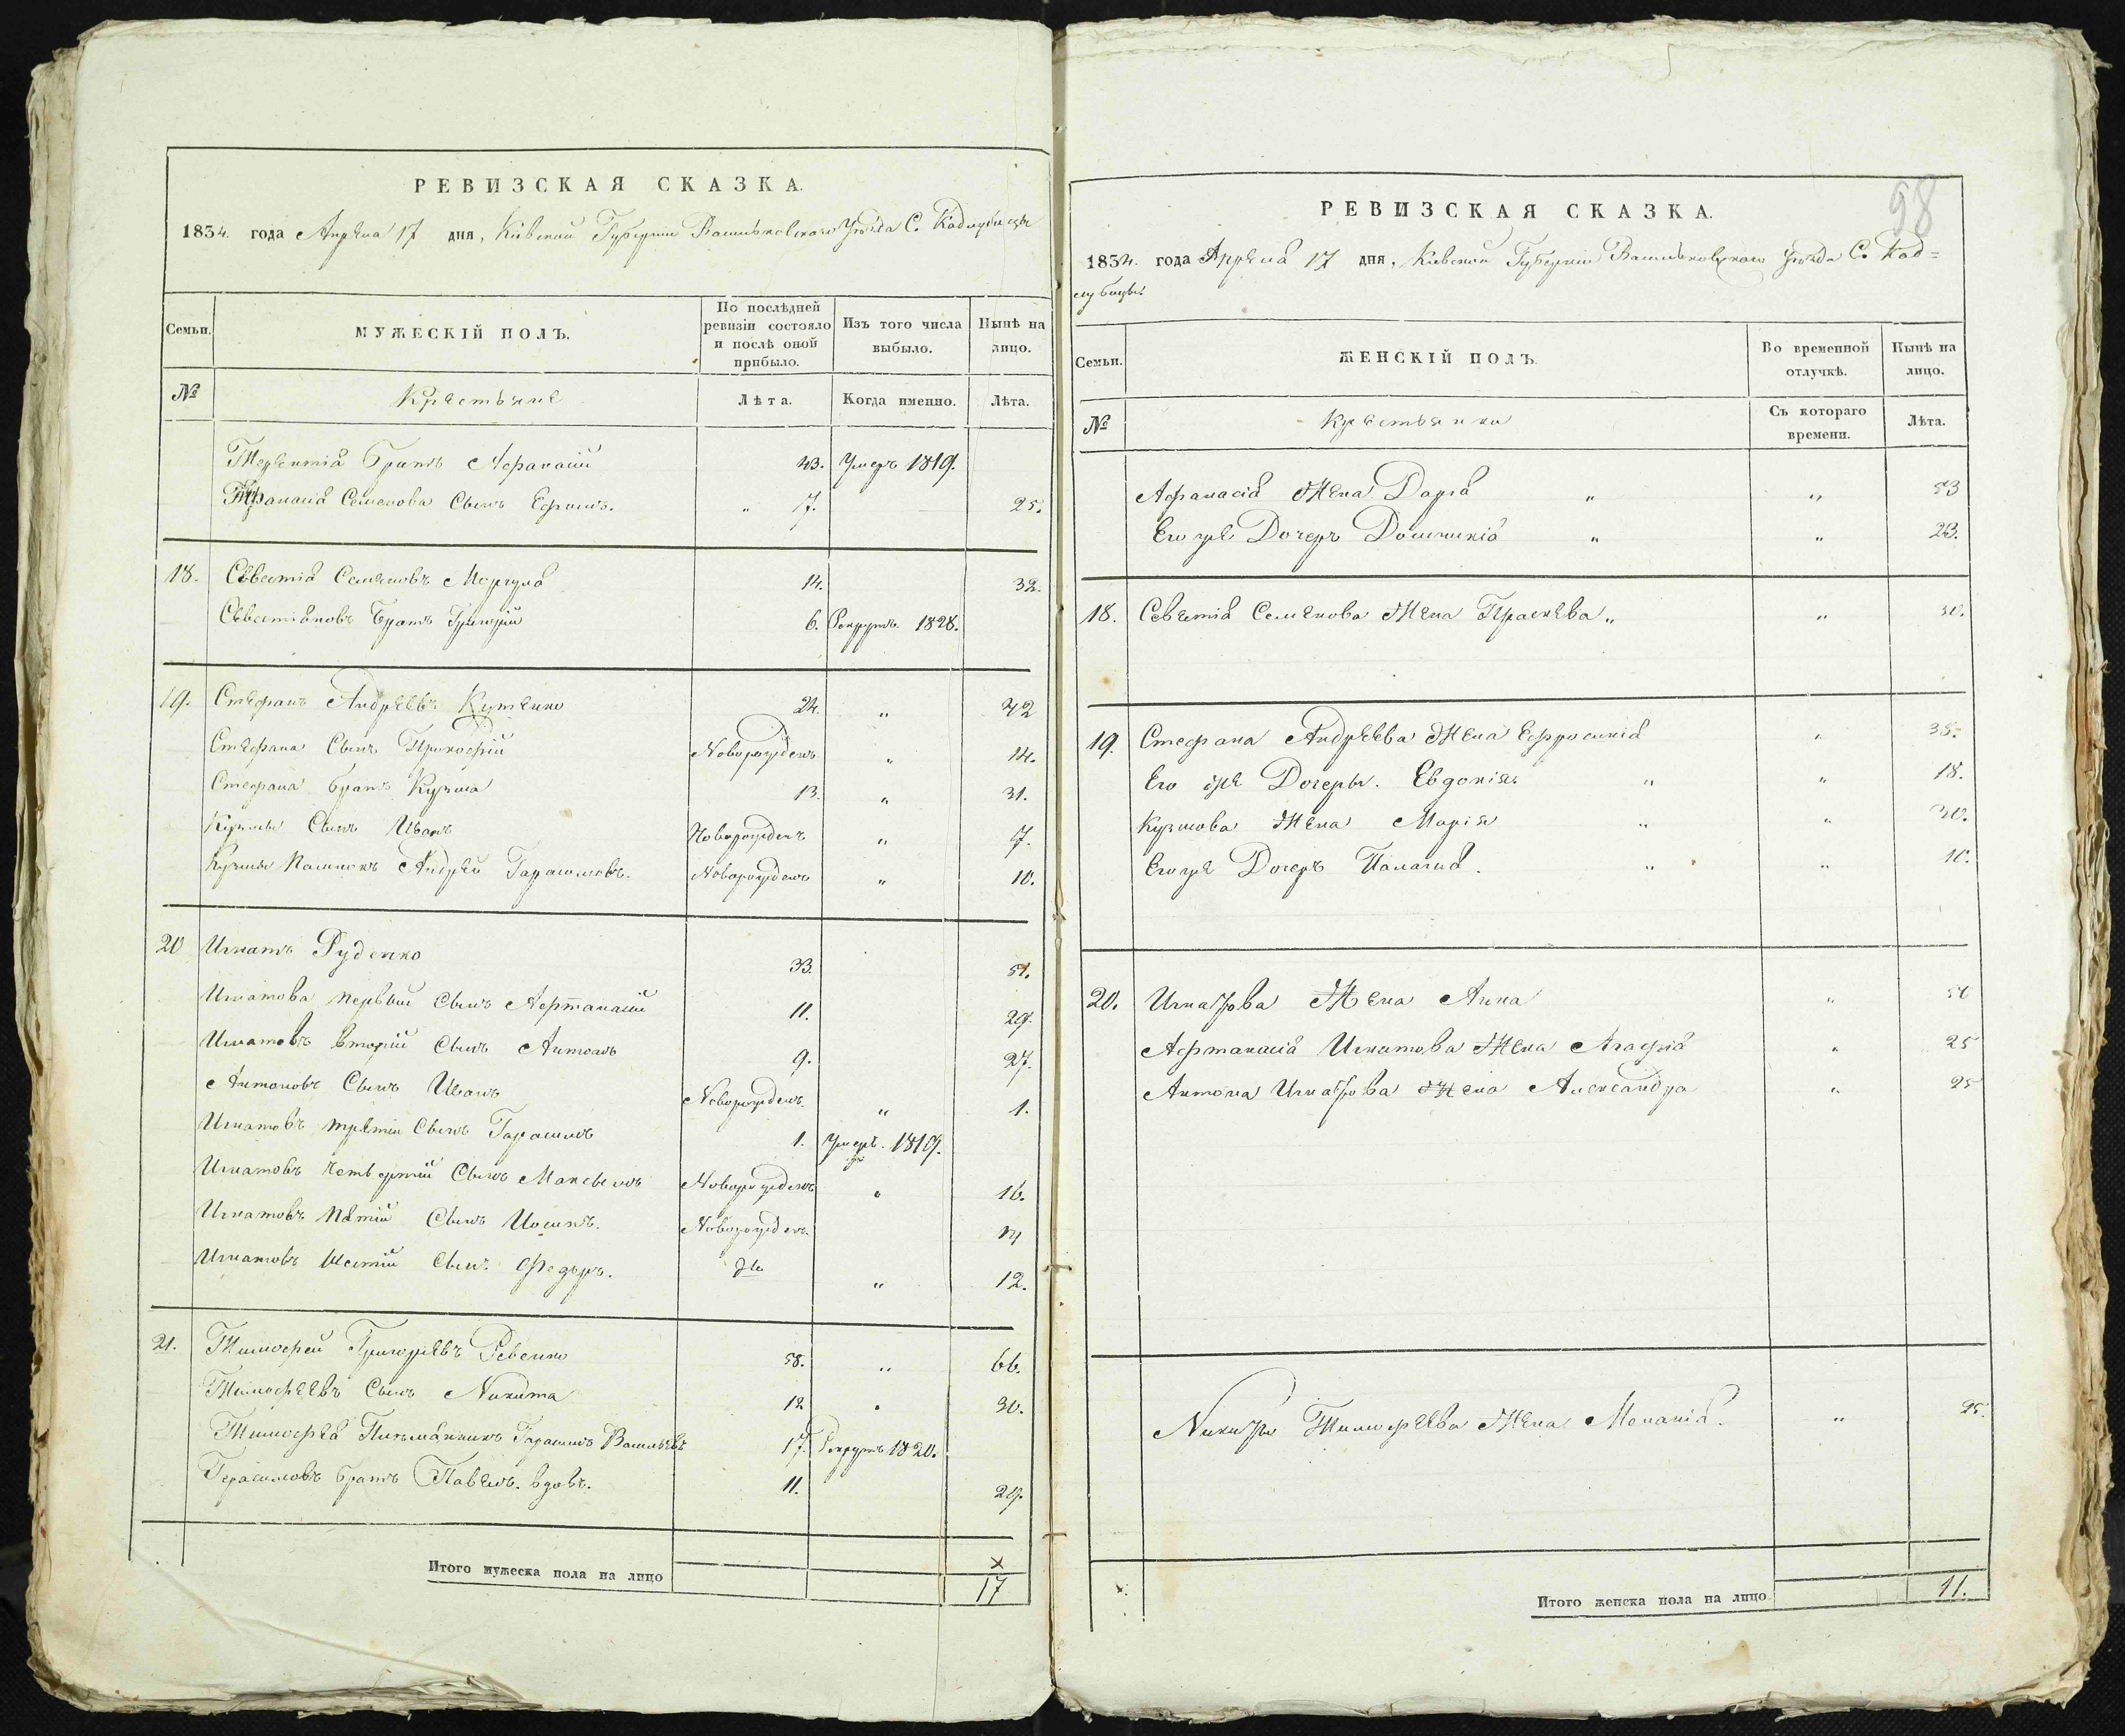 РЕВИЗСКАЯ СКАЗКА.
1834. года Апреля 17 дня, Кіевской Губерніи Васильковскаго Уезда С. Кадлубицы
Семьи.
МУЖЕСКІЙ ПОЛЪ.
По послѣдней ревизіи состояло и послѣ оной прибыло.
Изъ того числа выбыло.
Нынѣ на лицо.
№
Крестьяне
Лѣта.
Когда именно.
Лѣта.
Терентія братъ Афанасій 43. Умеръ 1819.
Афанасія Семенова Сынъ Ефимъ. " 7. 25.
18. Севастіа Семеновъ 14. 32.
Севастіановъ братъ Григорій 6. Рекрутъ 1828.
19. Стефанъ Андреевъ Кутенко 24. " 42
Стефана Сынъ Прокофій Новорожденъ " 14.
Стефана братъ Кузма 13. " 31.
Кузмы Сынъ Иванъ Новорожденъ " 7.
Кузмы Андрей Гарасимовъ. Новорожденъ " 10.
20 Игнатъ Руденко 33. 51.
Игнатова первый Сынъ Афтанасій 11. 29.
Игнатовъ вторій Сынъ Антонъ 9. 27.
Антоновъ Сынъ Иванъ Новорожденъ. " 1.
Игнатовъ третій Сынъ Гарасимъ 1. Умеръ. 1819.
Игнатовъ четвертій Сынъ Максымъ Новорожденъ " 16.
Игнатовъ пятій Сынъ Иосипъ. Новорожденъ. 14
Игнатовъ шестій Сынъ Федоръ. " 12.
21. Тимофей Григоріевъ Ревенко 58. " 66.
Тимофеевъ Сынъ Никита 12 " 30.
Тимофея Гарасимъ Васильевъ 17. Рекрутъ 1820.
Герасимовъ братъ Павелъ. вдовъ. 11. 29.
Итого мужеска пола на лицо
17
98
РЕВИЗСКАЯ СКАЗКА.
1834. года Апреля 17 дня, Кіевской Губерніи Васильковскаго Уезда С. Кад=
лубицы
Семьи.
ЖЕНСКІЙ ПОЛЪ.
Во временной отлучкѣ.
Нынѣ на лицо.
№
Крестьянки
Съ котораго времени.
Лѣта.
Афанасія Жена Дарія " " 53
Его же Дочерь Домникія " " 23.
18. Севастіа Семенова Жена Праскева " " 30.
19. Стефана Андреева Жена Ефросинія " 35.
Его же Дочеры. Евдокія. " " 18.
Кузмова Жена Марія " " 30.
Его же Дочерь Палагія. " " 10.
20. Игнатова Жена Анна " 50
Афтанасія Игнатова Жена Агафія " 25
Антона Игнатова Жена Александра " 25
Никиты Тимофеева Жена Меланія. " 25.
Итого женска пола на лицо
11.